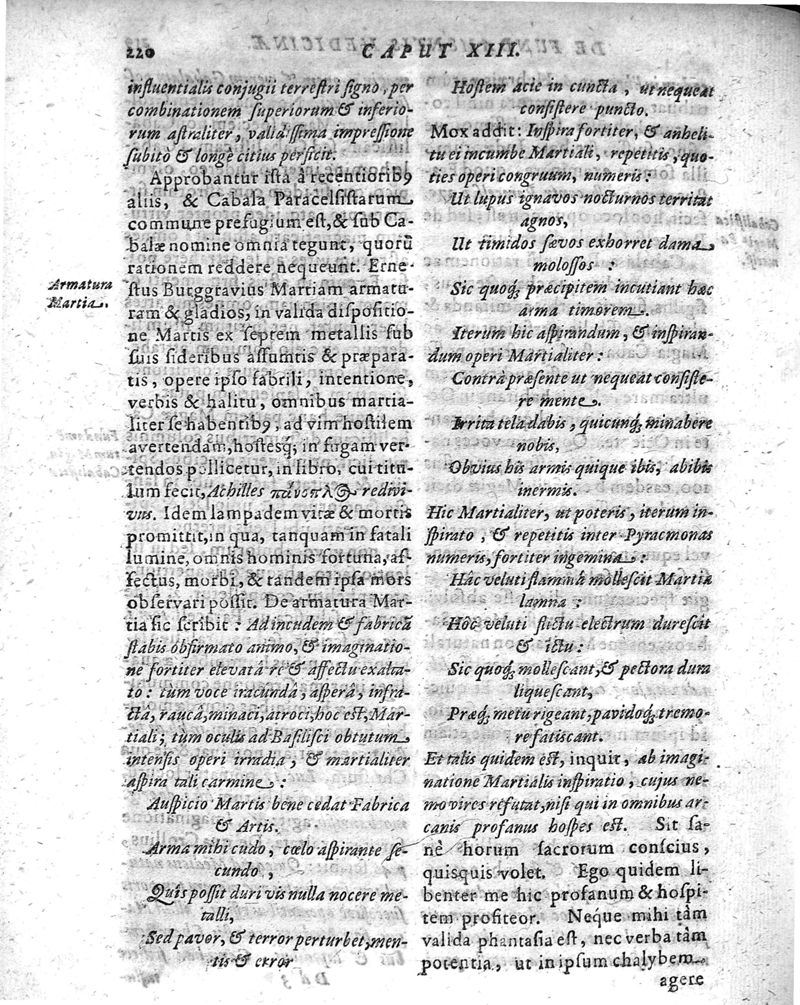 220
CAPUT XIII.
influentialis conjugii terrestri signo, per
combinationem superiorum & inferio-
rum astraliter, validissima impressione
subitò & longè citius perficit.
Approbantur ista à recentiorib9
aliis, & Cabala Paracelsistarum
commune prefugium est, & sub Ca-
balæ nomine omnia tegunt, quorũ
rationem reddere nequeunt. Erne-
stus Burggravius Martiam armatu-
ram & gladios, in valida dispositio-
ne Martis ex septem metallis sub
suis sideribus assumtis & præpara-
tis, opere ipso fabrili, intentione,
verbis & halitu, omnibus martia-
liter se habentib9, ad vim hostilem
avertendam, hostesq́; in fugam ver-
tendos pollicetur, in libro, cui titu-
lum fecit, Achilles πάνοπλ redivi-
vus. Idem lampadem vitæ & mortis
promittit, in qua, tanquam in fatali
lumine, omnis hominis fortuna, af-
fectus, morbi, & tandem ipsa mors
observari possit. De armatura Mar-
tia sic scribit: Ad incudem & fabricã
stabis obfirmato animo, & imaginatio-
ne fortiter elevatâ re & affectu exalta-
to: tum voce iracundâ, asperâ, infra-
ctâ, raucâ, minaci, atroci, hoc est, Mar-
tiali; tum oculis ad Basilisci obtutum
intensis operi irradia, & martialiter
aspira tali carmine:
Auspicio Martis bene cedat Fabrica
& Artis.
Arma mihi cudo, cœlo aspirante se-
cundo,
Quîs possit duri vis nulla nocere me-
talli,
Sed pavor, & terror perturbet, men-
tis & error
Armatura
Martia.
Hostem acie in cuncta, ut nequeat
consistere puncto.
Mox addit: Inspira fortiter, & anheli-
tu ei incumbe Martiali, repetitis, quo-
ties operi congruum, numeris:
Ut lupus ignavos nocturnos territat
agnos,
Ut timidos sævos exhorret dama
molossos:
Sic quoq́; præcipitem incutiant hæc
arma timorem.
Iterum hic aspirandum, & inspiran-
dum operi Martialiter:
Contrà præsente ut nequeat consiste-
re mente.
Irrita tela dabis, quicunq́; minabere
nobis,
Obvius his armis quique ibis, abibis
inermis.
Hic Martialiter, ut poteris, iterum in-
spirato, & repetitis inter Pyracmonas
numeris, fortiter ingemina:
Hâc veluti flammâ mollescit Martia
lamna:
Hôc veluti flictu electrum durescit
& ictu:
Sic quoq́; mollescant, & pectora dura
liquescant,
Præq́; metu rigeant, pavidoq́; tremo-
re fatiscant.
Et talis quidem est, inquit, ab imagi-
natione Martialis inspiratio, cujus ne-
mo vires refutat, nisi qui in omnibus ar-
canis profanus hospes est. Sit sa-
nè horum sacrorum conscius,
quisquis volet. Ego quidem li-
benter me hic profanum & hospi-
tem profiteor. Neque mihi tàm
valida phantasia est, nec verba tàm
potentia, ut in ipsum chalybem
agere